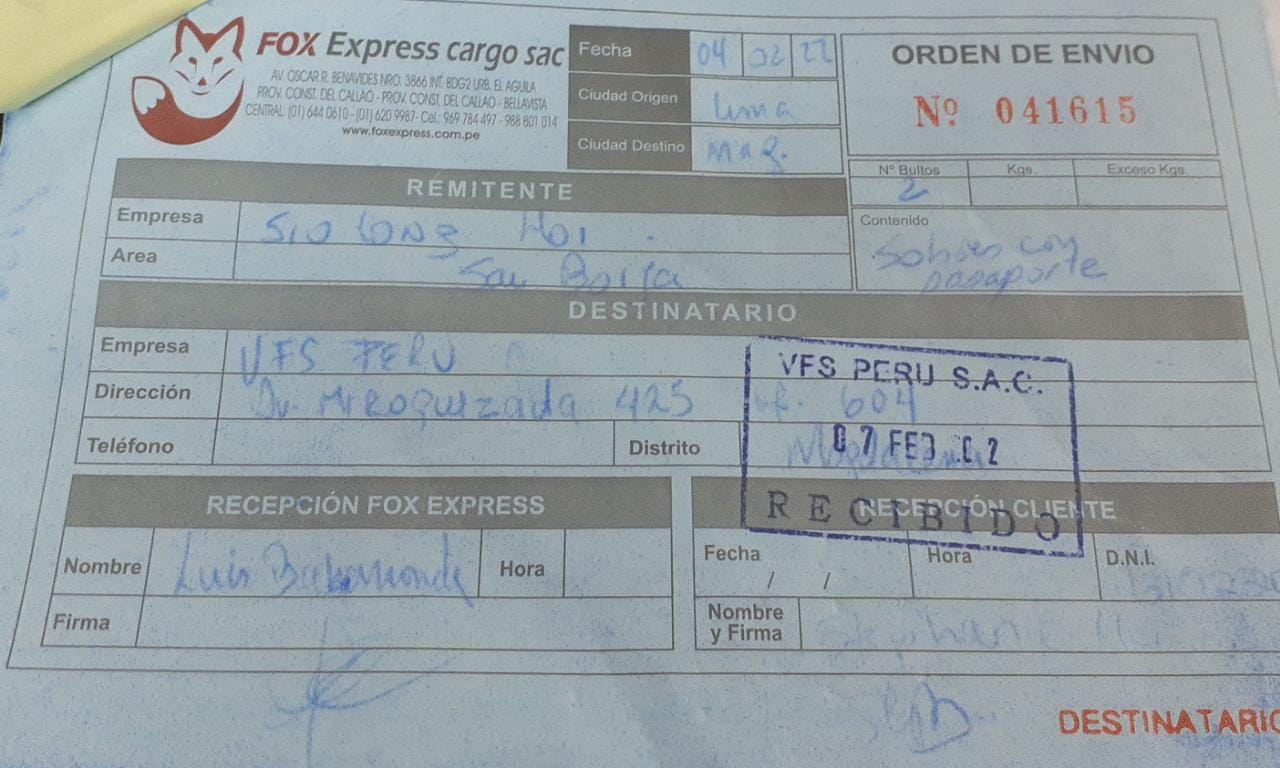 FOX Express cargo sac
AV. OSCAR R. BENAVIDES NRO. 3866 INT. BDG2 URB. EL AGUILA
PROV. CONST. DEL CALLAO - PROV. CONST. DEL CALLAO - BELLAVISTA
CENTRAL: (01) 644 0610 - (01) 620 9987 - Cel.: 969 784 497 - 988 801 014
www.foxexpress.com.pe
Fecha 04 02 22
Ciudad Origen Lima
Ciudad Destino Mag.
ORDEN DE ENVIO
Nº 041615
Nº Bultos Kgs. Exceso Kgs.
2
Contenido
Sobres con
pasaporte
REMITENTE
Empresa
Area San Borja
DESTINATARIO
Empresa VFS PERU
Dirección Av. 425 of. 604
Teléfono Distrito Magdalena
VFS PERU S.A.C.
07 FEB
RECIBIDO
RECEPCIÓN FOX EXPRESS
Nombre Luis Hora
Firma
RECEPCIÓN CLIENTE
Fecha / / Hora D.N.I.
Nombre
y Firma
DESTINATARIO